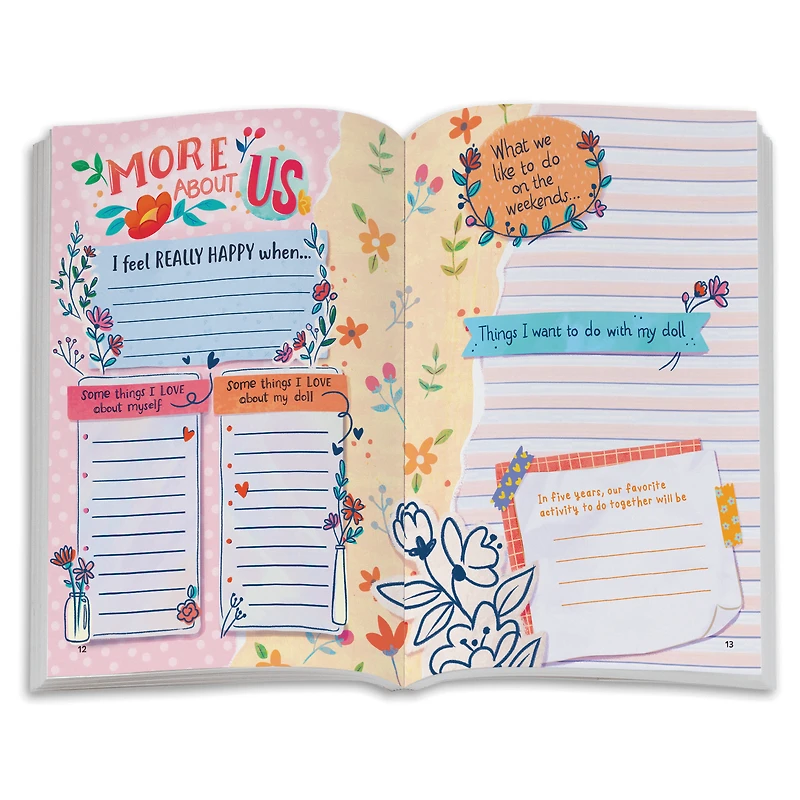 MORE
ABOUT US
I feel REALLY HAPPY when...
Some things I LOVE
about myself
Some things I LOVE
about my doll
12
What we
like to do
on the
weekends...
Things I want to do with my doll
In five years, our favorite
activity to do together will be
13